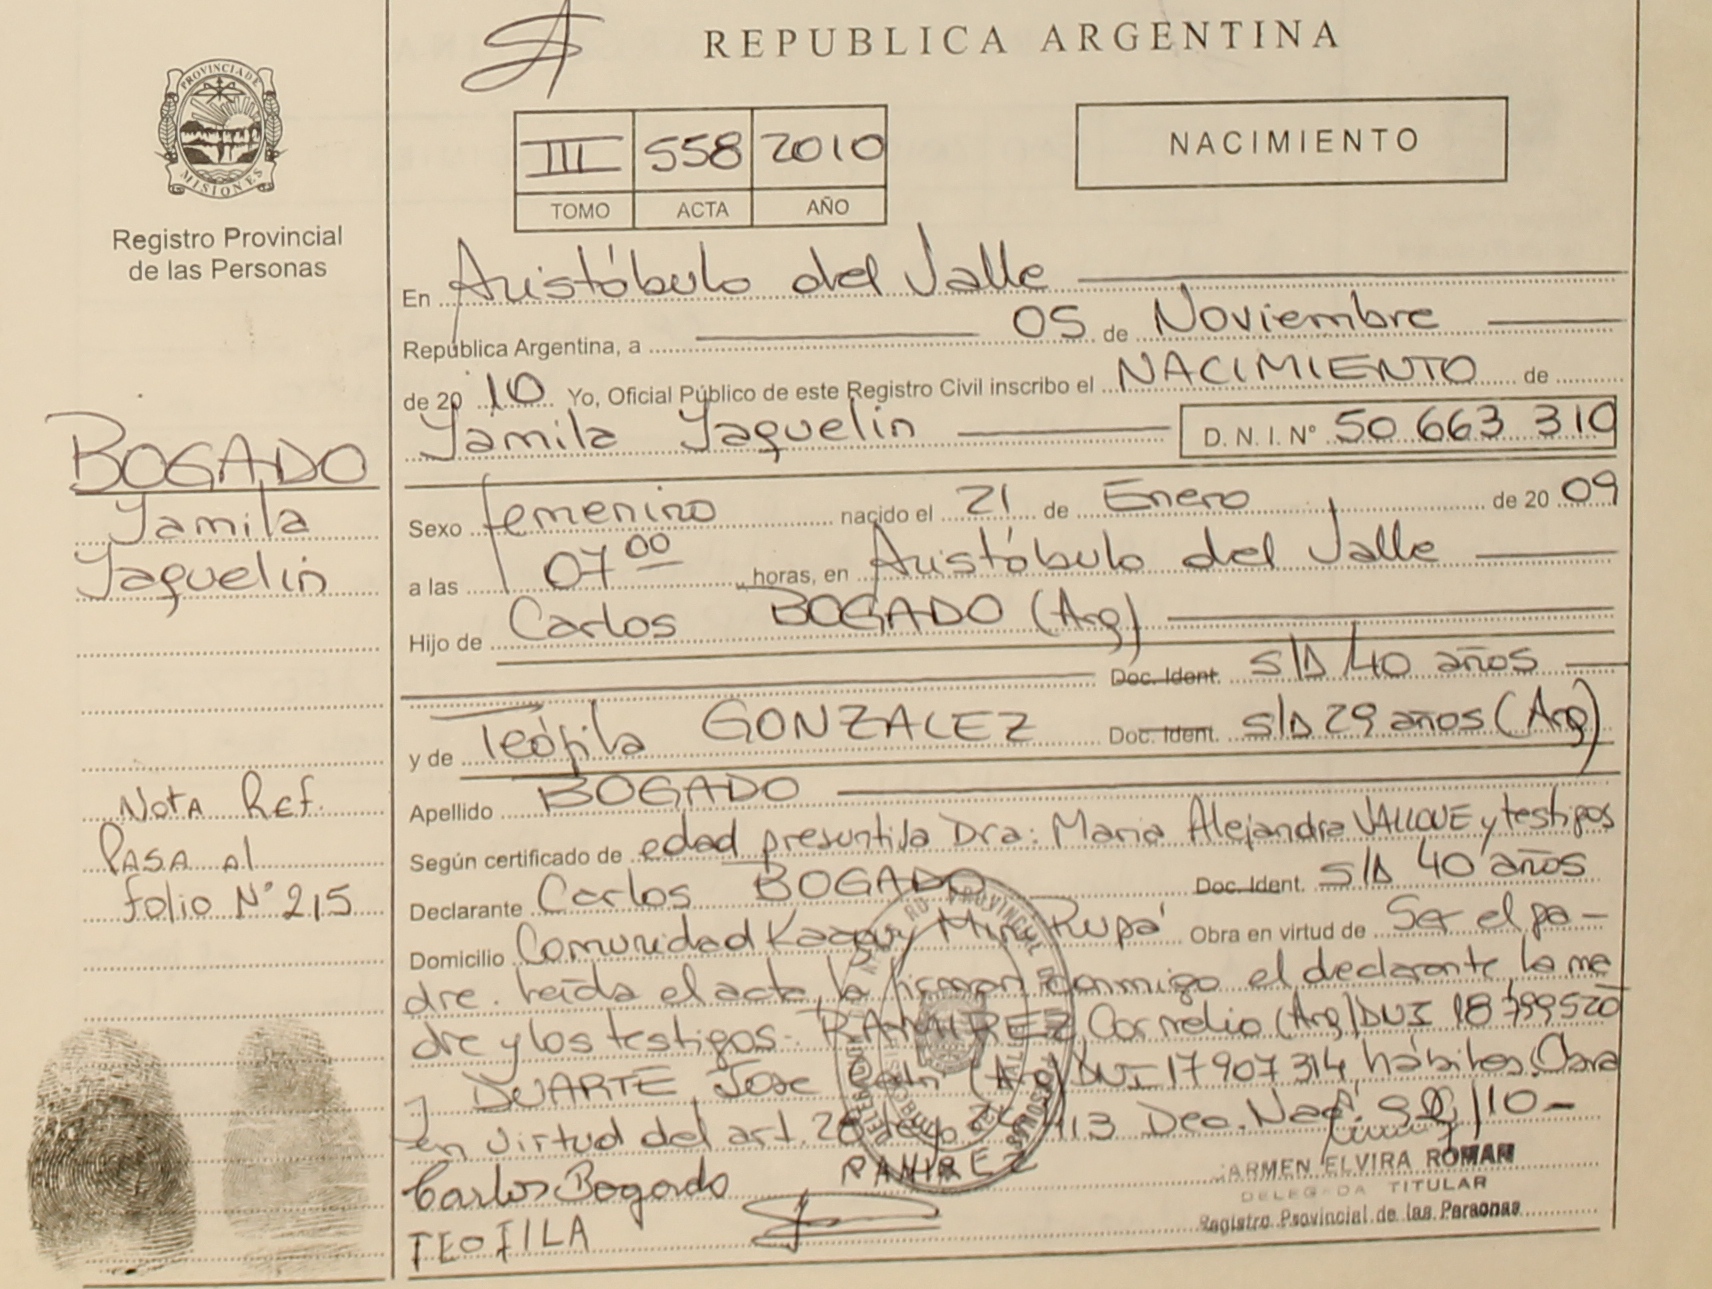 REPUBLICA ARGENTINA
PROVINCIA DE MISIONES
Registro Provincial
de las Personas
III 558 2010
TOMO ACTA AÑO
NACIMIENTO
En Aristóbulo del Valle
República Argentina, a 05 de Noviembre
de 20 10 Yo, Oficial Público de este Registro Civil inscribo el NACIMIENTO de
Yamila Yaquelin D. N. I. N° 50 663 310
Sexo femenino nacido el 21 de Enero de 20 09
a las 07 00 horas, en Aristóbulo del Valle
Hijo de Carlos BOGADO (Arg)
Doc. Ident. S/D 40 años
y de Teófila GONZALEZ Doc. Ident. S/D 29 años (Arg)
Apellido BOGADO
Según certificado de edad presuntiva Dra: Maria Alejandra y testigos
Declarante Carlos BOGADO Doc. Ident. S/D 40 años
Domicilio Comunidad Kaaguy Miri Rupa Obra en virtud de Ser el pa-
dre. Leída el acta, la firman conmigo el declarante, la ma
dre y los testigos. RAMIREZ Cornelio (Arg) DNI 18 799520
y DUARTE, Jose (Arg) DNI 17907314 hábiles. Obra
en virtud del art. 28 Dec. Nac. 90/10-
Carlos Bogado
RAMIREZ
TEOFILA
CARMEN ELVIRA ROMAN
DELEGADA TITULAR
Registro Provincial de las Personas
BOGADO
Yamila
Yaquelin
NOTA Ref.
PASA al
folio N° 215